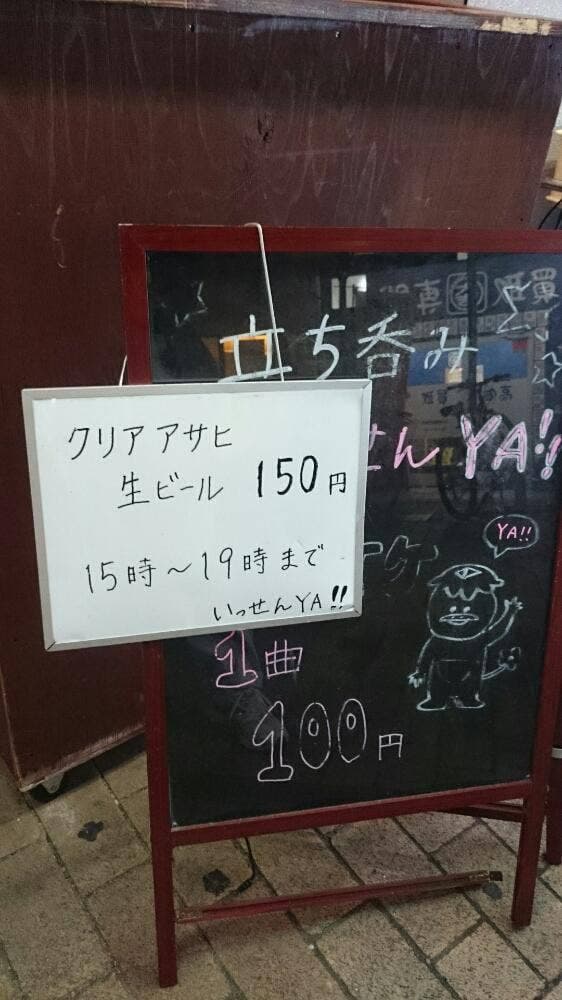 立ち呑み
せんYA!!
クリアアサヒ
生ビール 150円
15時～19時まで
いっせんYA!!
YA!!
1曲
100円